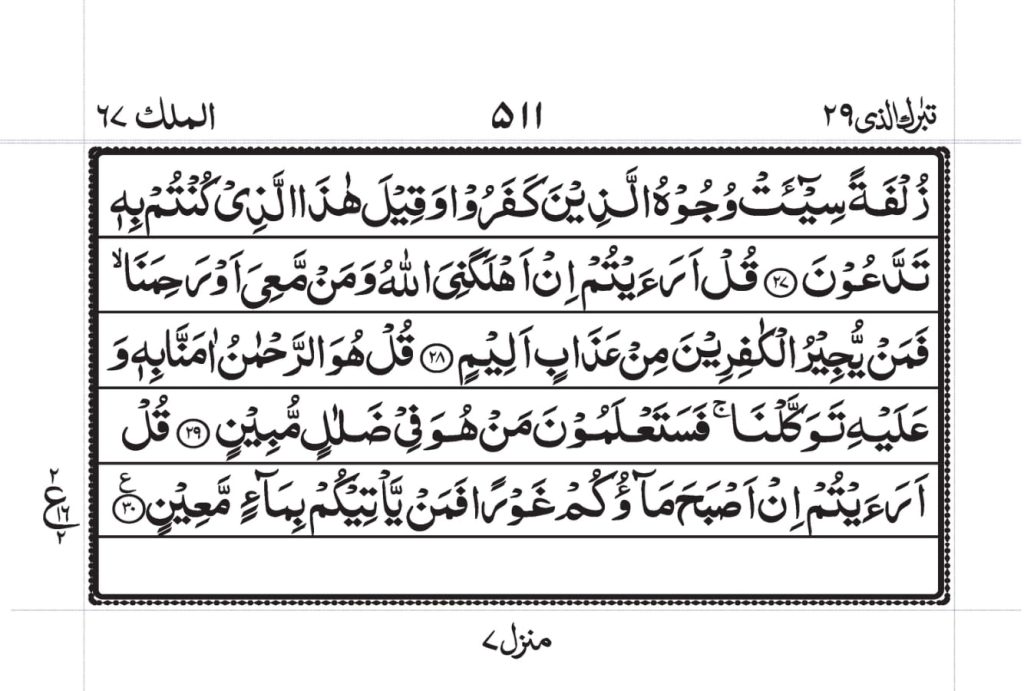 تبٰرك الذی ٢٩
٥١١
الملك ٦٧
زُلْفَةً سِیْٓـَٔتْ وُجُوْهُ الَّذِیْنَ كَفَرُوْا وَقِیْلَ هٰذَا الَّذِیْ كُنْتُمْ بِهٖ
تَدَّعُوْنَ ﴿٢٧﴾ قُلْ اَرَءَیْتُمْ اِنْ اَهْلَكَنِیَ اللّٰهُ وَمَنْ مَّعِیَ اَوْرَحِمَنَا ۙ
فَمَنْ یُّجِیْرُ الْكٰفِرِیْنَ مِنْ عَذَابٍ اَلِیْمٍ ﴿٢٨﴾ قُلْ هُوَ الرَّحْمٰنُ اٰمَنَّا بِهٖ وَ
عَلَیْهِ تَوَكَّلْنَا ۚ فَسَتَعْلَمُوْنَ مَنْ هُوَ فِیْ ضَلٰلٍ مُّبِیْنٍ ﴿٢٩﴾ قُلْ
اَرَءَیْتُمْ اِنْ اَصْبَحَ مَآؤُكُمْ غَوْرًا فَمَنْ یَّاْتِیْكُمْ بِمَآءٍ مَّعِیْنٍ ﴿٣٠﴾ ع
٢
ع
١٦
٢
منزل ٧